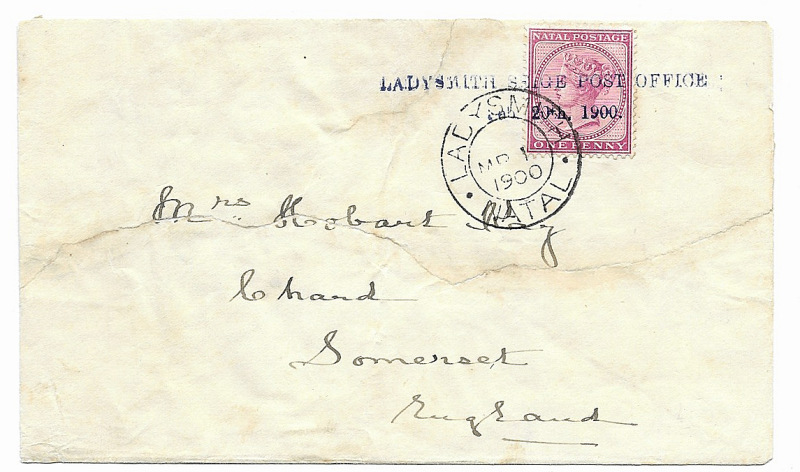 NATAL POSTAGE
LADYSMITH SEIGE POST OFFICE
20th, 1900.
ONE PENNY
LADYSMITH
MR 1
1900
NATAL
Mrs Hobart
Chard
Somerset
England